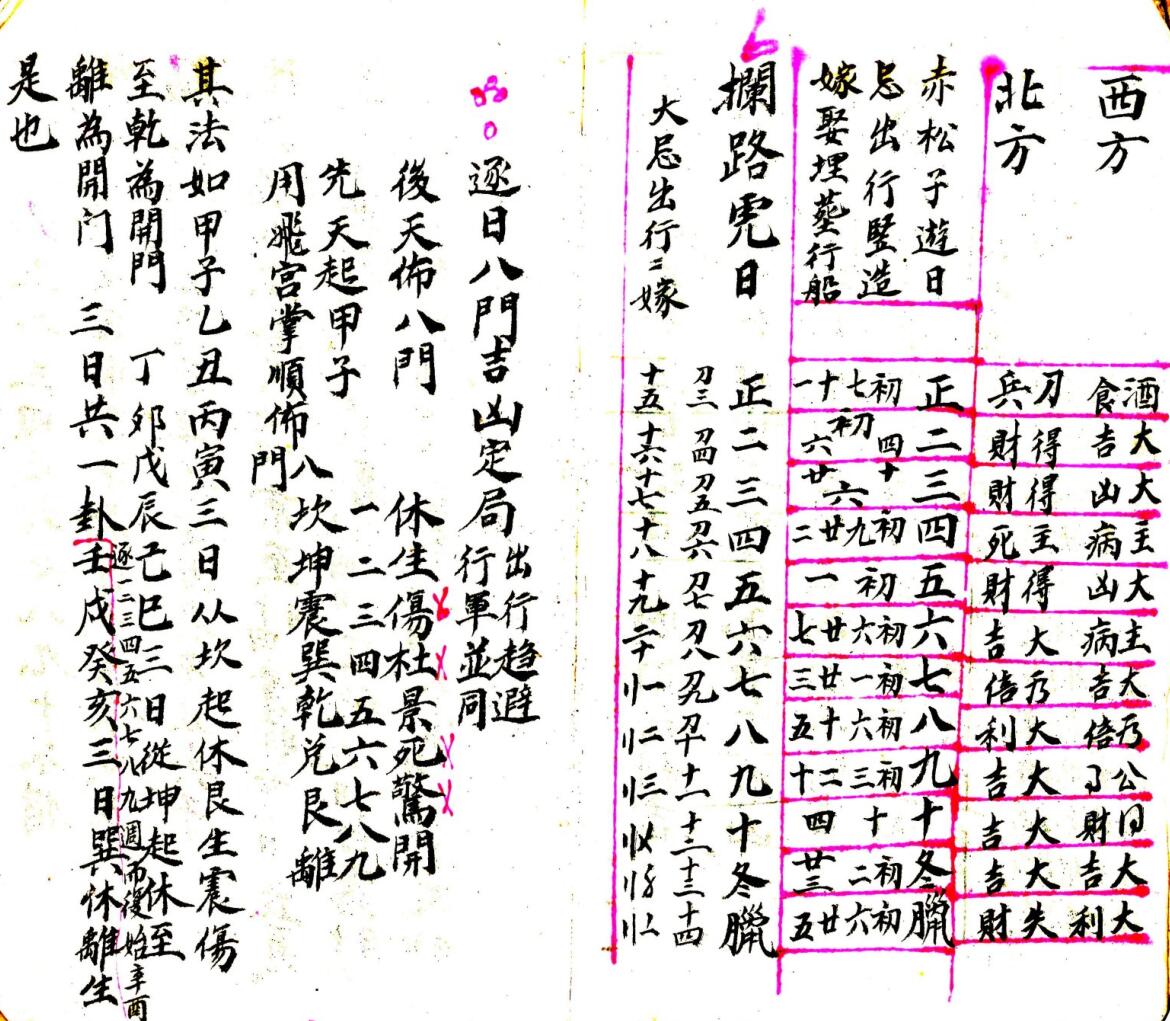 西方
酒食
大吉
大凶
主病
大凶
主病
大吉
大吉
大利
北方
刀兵
得財
得財
主死
得財
大吉
大利
大吉
大吉
大吉
失財
赤松子遊日
忌出行竪造
嫁娶埋葬行船
正 初七 十一
二 初四 初六
三 十六 廿
四 初九 廿二
五 初一
六 初六 廿七
七 初一 廿三
八 初六 十五
九 初三 二十
十 十四
冬 初二 廿三
臘 初六 廿五
欄路虎日
正二三四五六七八九十冬臘
大忌出行二嫁
十一 十二 十三 十四
十五 十六 十七 十八 十九 二十
逐日八門吉凶定局
出行趋避
行軍並同
後天佈八門
休生傷杜景死驚開
先天起甲子
一二三四五六七八九
用飛宫掌順佈八門
坎坤震巽乾兌艮離
其法如甲子乙丑丙寅三日从坎起休艮生震傷
至乾為開門 丁卯戊辰己巳三日從坤起休至
離為開门 三日共一卦
逐二三四五六七八九週而復始辛酉
壬戌癸亥三日巽休離生
是也